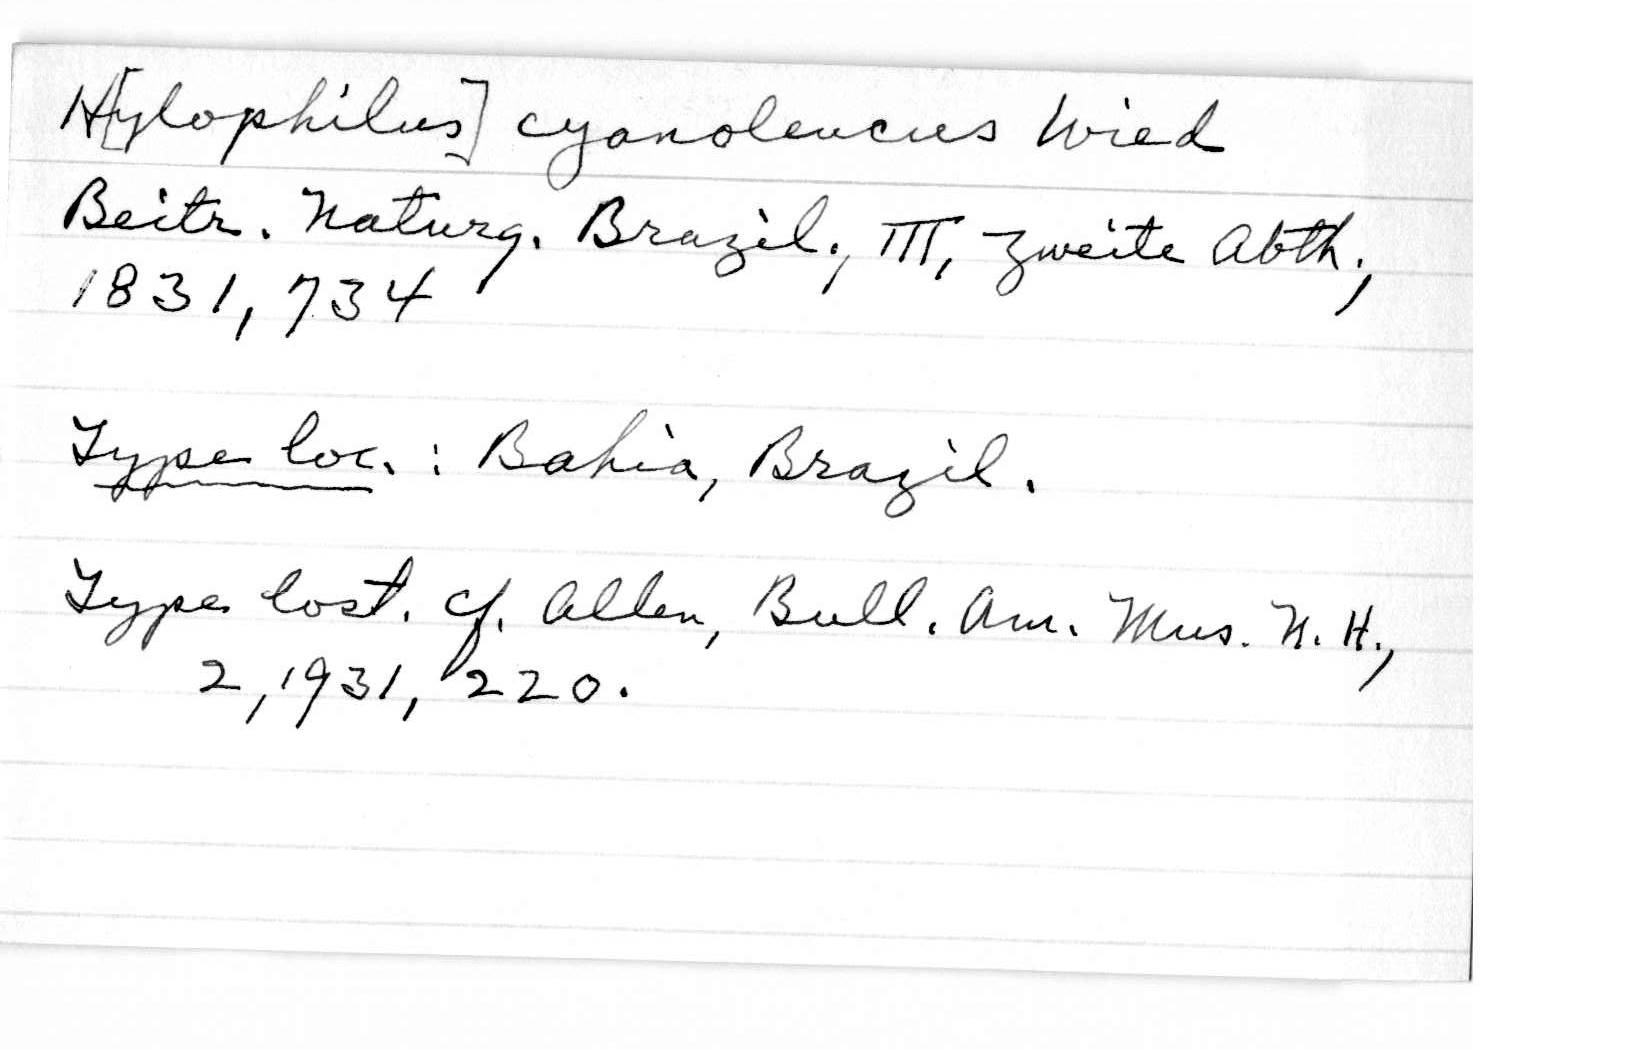 H[ylophilus] cyanoleucus Wied
Beitr. Naturg. Brazil., III, Zweite Abth.,
1831, 734
Type loc. : Bahia, Brazil.
Type lost. cf. Allen, Bull. Am. Mus. N. H.,
2, 1931, 220.